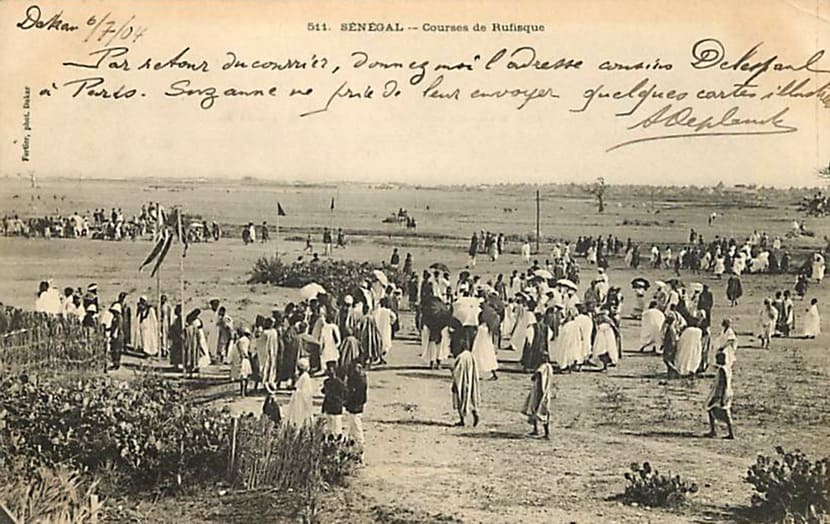 511. SÉNÉGAL -- Courses de Rufisque
Dakar 6/7/04
Par retour du courrier, donnez moi l'adresse cousins
à Paris. Suzanne ne prie de leur envoyer quelques cartes illustrées
Fortier, phot. Dakar